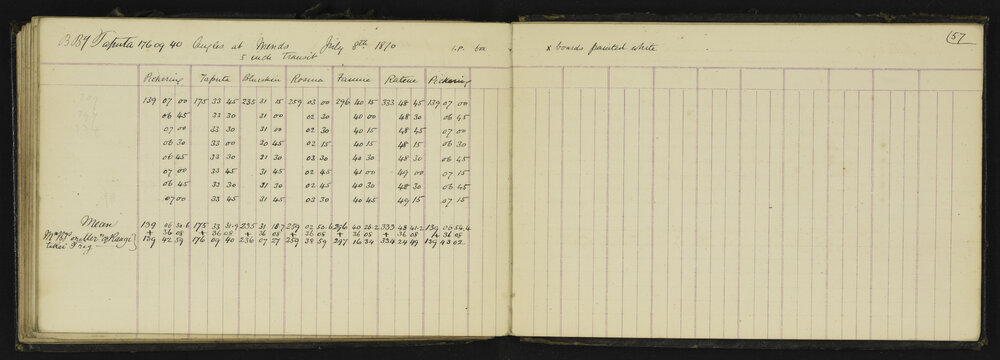 BBy Taputa 176 09 40 Angles at Mends July 8th 1870 I.P. box x boards painted white (57)
5 inch Transit
Pickering Taputa Bluiskin Rosma Ratene Pickering
139 07 00 175 33 45 235 31 15 259 03 00 296 40 15 333 48 45 139 07 00
06 45 33 30 31 00 02 30 40 00 48 30 06 45
07 00 33 30 31 00 02 30 40 15 48 45 07 00
06 30 33 00 30 45 02 15 40 15 48 15 06 30
06 45 33 30 31 30 03 30 40 30 48 30 06 45
07 00 33 45 31 45 02 45 41 00 49 00 07 15
06 45 33 30 31 30 02 45 40 30 48 30 06 45
07 00 33 45 31 45 03 30 40 45 49 15 07 15
Mean 139 06 50.6 175 33 31.9 235 31 18.7 259 02 50.6 296 40 26.2 333 48 41.2 139 06 54.4
+ 36 08 + 36 08 + 36 08 + 36 08 + 36 08 + 36 08 + 36 08
139 42 59 176 09 40 236 07 27 259 38 59 297 16 34 334 24 49 139 43 02